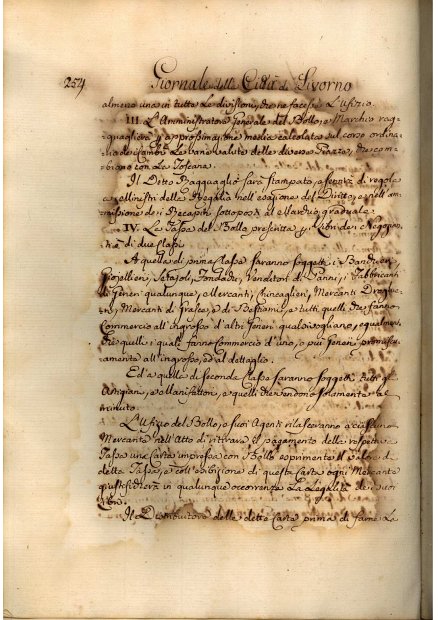 254 Giornale della Città di Livorno
almeno una in tutte le divisioni, che ne facesse l'Ufizio.
III. L'Amministratore Generale del Bollo, e Marchio rag-
guaglierà per approssimazione media calcolata sul corso ordina-
rio de Cambi le varie valute delle diverse Piazze, che cam-
biano con la Toscana.
Il Detto Ragguaglio sarà stampato, e servirà di regola
a Ministri della Regalia nell'esazione del Diritto, e nell'am-
missione dei Recapiti sottoposti al sudio graduale.
IV. La Tassa del Bollo prescritta per i Libri dei Negozi
di due Classi
A quella di prima Classe saranno soggetti i Banchieri,
Gioiellieri, Setajoli, Fondachi, Venditori di Panni, i Fabbricanti
di Generi qualunque, e Mercanti Chincaglieri, Mercanti Droghie-
ri, Mercanti di Grasce, e di Bestiami, e tutti quelli che fanno
Commercio all'ingrosso d'altri Generi qualsisogliano, egualmen-
te che quelli i quali fanno commercio d'uno, o più Generi promiscua-
mente all'ingrosso, ed al dettaglio.
Ed a quella di seconda Classe saranno soggetti tutti gli
Artigiani, e Manifattori, e quelli che vendono solamente al
minuto.
L'Ufizio del Bollo, o suoi Agenti rilasceranno a ciascun
Mercante nell'Atto di ritirare il pagamento della respettiva
Tassa una Carta impressa con Bollo esprimente il valore di
detta Tassa, e coll'esibizione di questa Carta ogni Mercante
giustificherà in qualunque occorrenza la Legalità de suoi
Libri.
Il Distributore delle dette Carte prima di farne la